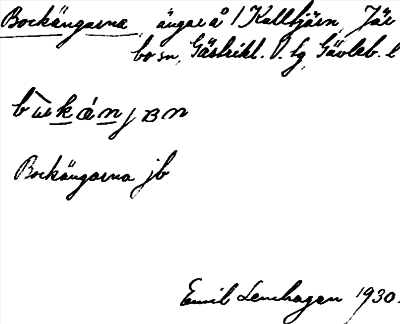 Bockängarna, ängar å 1 Kalltjärn, Jär
bo sn, Gästrikl. V. tg, Gävleb. l
Bockängarna jb
Emil Lenhagen 1930.